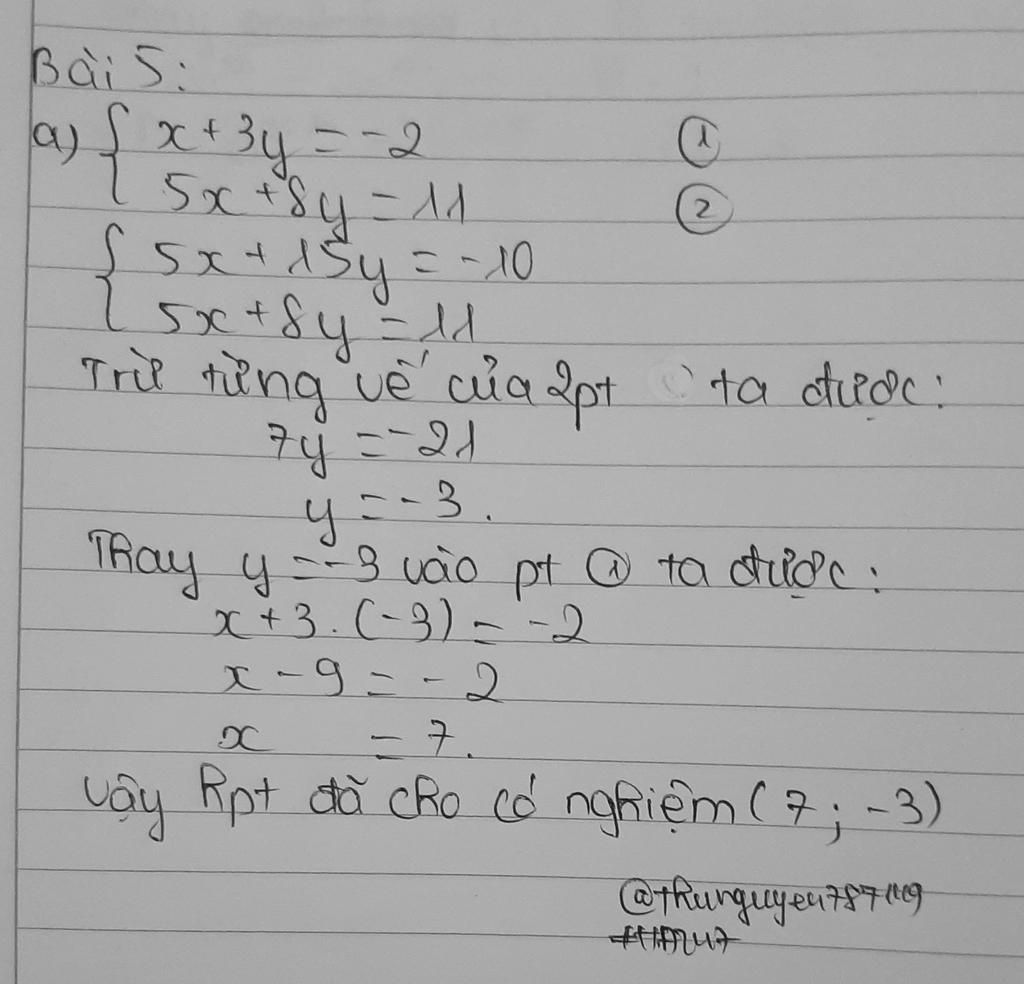 Bài 5:
a) { x + 3y = -2 ①
5x + 8y = 11 ②
{ 5x + 15y = -10
5x + 8y = 11
Trừ từng vế của 2pt ta được:
7y = -21
y = -3.
Thay y = -3 vào pt ① ta được:
x + 3. (-3) = -2
x - 9 = -2
x = 7.
Vậy hpt đã cho có nghiệm (7; -3)